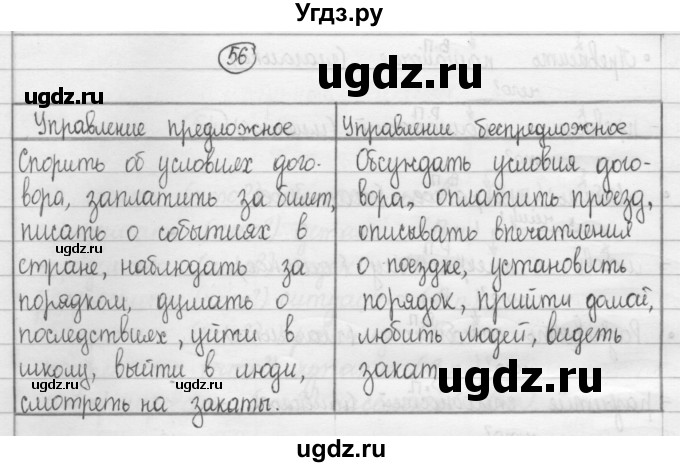 Угдз.ру
56
ugdz.ru
ugdz.ru
ugdz.ru
Управление предложное
Спорить об условиях дого-
вора, заплатить за билет,
писать о событиях в
стране, наблюдать за
порядком, думать о
последствиях, уйти в
школу, выйти в люди,
смотреть на закаты.
Управление беспредложное
Обсуждать условия дого-
вора, оплатить проезд,
описывать впечатления
о поездке, установить
порядок, прийти домой,
любить людей, видеть
закат
ugdz.ru
ugdz.ru
ugdz.ru
ugdz.ru
ugdz.ru